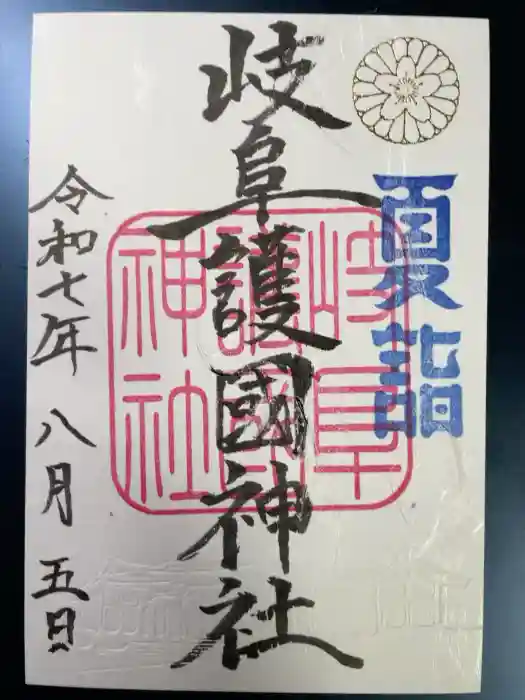 夏詣
岐阜護國神社
岐阜
護國
神社
令和七年 八月 五日